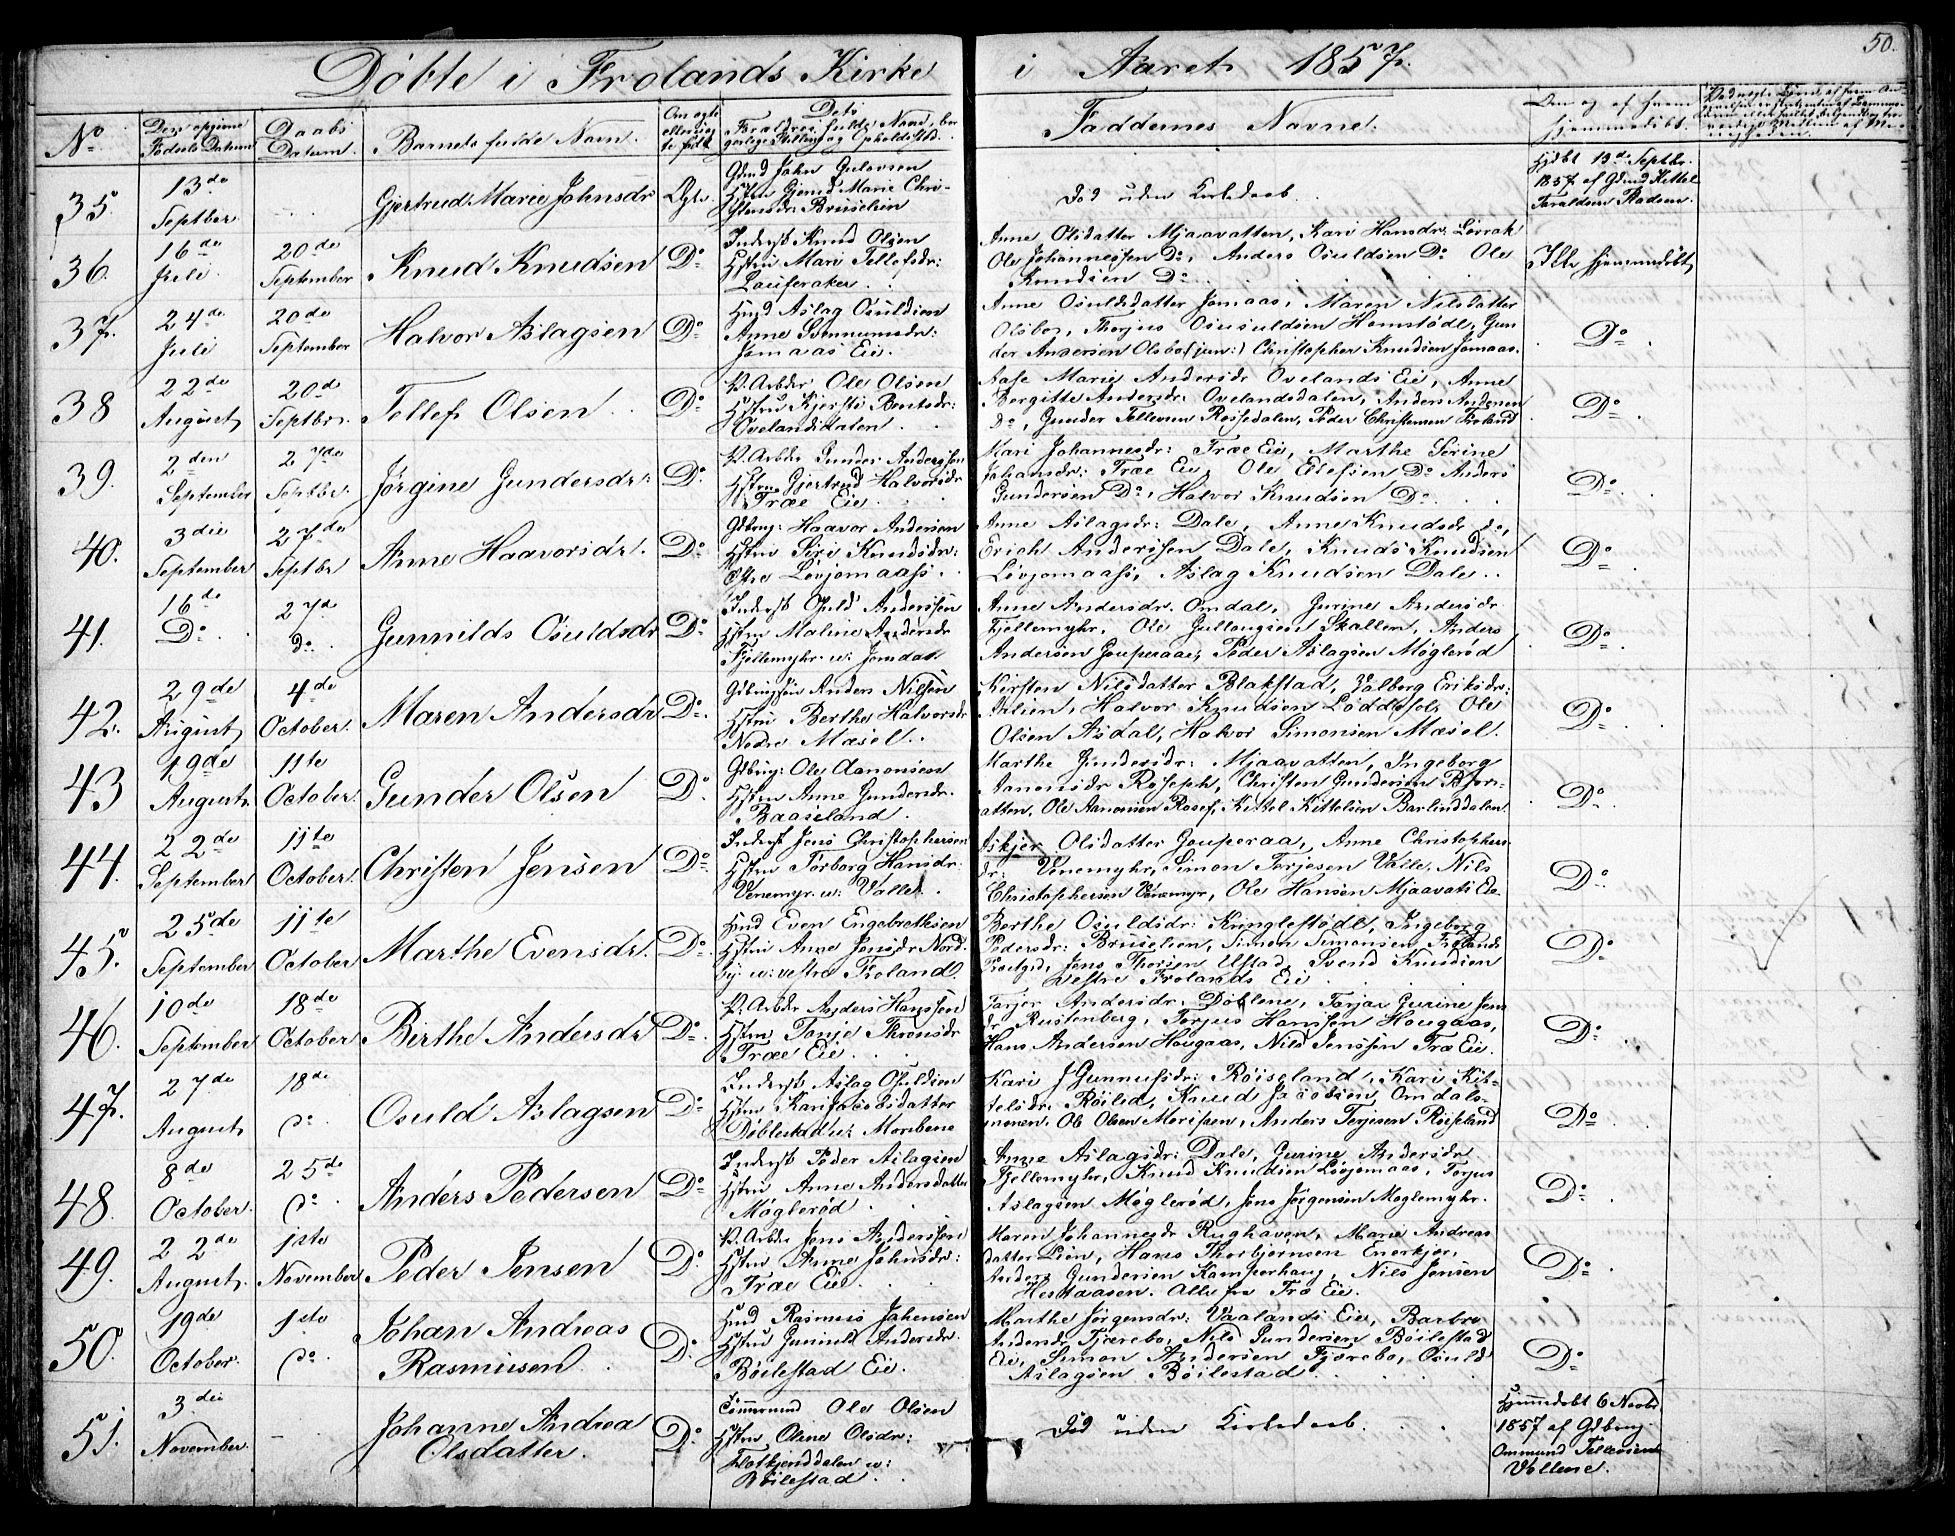 Döbte i Frolands Kirke i Aaret 1857.
50.
No.
Daabs Datum.
Barnets fulde Navn.
Faddernes Navne.
35. 13de Septber. Gjertrud Marie Johnsdr. Ægte.
Gdmd John
Hstru Marie Chri-
stensdr: Bruselien
Död uden Kirkedaab.
hjdbt 13de Septbr.
1857 af Gdmd Kittel
Taraldsen
36. 16de Juli 20de September Knud Knudsen Do
Inderst Knud Olsen
Hstru Mari Tellefsdr:
Anne Olsdatter Mjaavatten, Kari Hansdr. Lövrak
Ole Johannessen Do, Anders Osuldsen Do Ole
Knudsen Do
Ikke hjemmedöbt
37. 24de Juli 20de September Halvor Aslagsen Do
Hmd Aslag Osuldsen
Anne
Jomaas Eie.
Anne Osuldsdatter Jomaas, Maren Nilsdatter
Olsbo, Terjus Osuldsen Hemstödl, Gun
der Andersen Olsbo (jun:) Christopher Knudsen Jomaas.
Do
38 22de August 20de Septbr. Tellef Olsen Do
P. Arbdr Ole Olsen
Hstru Kjersti Berntsdr:
Ovelandsdalen
Aase Marie Andersdr Ovelands Eie, Anne
Bergitte Andersdr: Ovelandsdalen, Anders Andersen
Do, Gunder Tellevsen Rossedalen, Peder Christensen Froland
Do
39. 2den September 27de Septbr. Jörgine Gundersdr: Do
P. Arbdr Gunder Anderssen
Hstru Gjertrud Halvorsdr
Træe Eie
Kari Johannesdr: Træe Eie, Marthe Serine
Johansdr: Træe Eie, Ole Ellefsen Do Anders
Gundersen Do, Halvor Knudsen Do
Do
40. 3die September 27de Septbr Anne Haavorsdr. Do
Gdbrug: Haavor Andersen
Hstru Siri Knudsdr:
Østre Lövjomaas.
Anne Aslagsdr: Dale, Anne Knudsdr do,
Erich Anderssen Dale, Knud Knudsen
Lövjomaas, Aslag Knudsen Dale.
Do
41. 16de Do 27de do Gunnilds Osuldsdr Do
Inderst Osuld Anderssen
Hstru Maline Andersdr
Fjellemyhr u: Jomdal.
Anne Andersdr. Omdal, Gurine Andersdr
Fjellemyhr, Ole Gullaugsen Skallen, Anders
Andersen Gouperaae, Peder Aslagsen Möglerød
Do
42. 29de August 4de October. Maren Andersdr Do
Anders Nilssen
Hstru Berthe Halvorsdr
Nedre Mæsel.
Kirsten Nilsdatter Blakstad, Valborg Eriksdr:
Halvor Knudsen Löddesöl, Ole
Olsen Asdal, Halvor Simonsen Mæsel.
Do
43 19de August 11te October. Gunder Olsen Do
Gdbrug: Ole Aanonsen
Hstru Anne Gundersdr.
Baaseland.
Marthe Gundersdr: Mjaavatten, Ingeborg
Aanonsdr Roseph, Christen Gundersen Bjor-
vatten, Ole Aanonsen Rosef, Kittel Kittelsen Barlinddalen
Do
44. 22de September 11te October. Christen Jensen Do
Inderst Jens Christophersen
Hstru Torborg Hansdr:
Venemyr u: Valle
Askjer Olsdatter Gouperaa, Anne Christophers
dr: Venemyhr, Simon Terjesen Valle, Nils
Christophersen Venemyr, Ole Hansen Mjaavats Eie
Do
45. 25de September 11te October Marthe Evensdr. Do
Hmd Even Engebretsen
Hstru Anne Jensdr: Nord-
u: vestre Froland.
Berthe Osuldsdr: Kringlestödl, Ingeborg
Pedersdr: Bruselien, Simon Simonsen Frolands
Prestgd, Jens Thorsen Ufstad, Svend Knudsen
vestre Frolands Eie
Do
46. 10de September 18de October Birthe Andersdr Do
P. Arbdr Anders Hanssen
Hstru Tonje
Træe Eie.
Torjer Andersdr. Döblene, Torjar Gurine Jens
dr Rustenberg, Terjus Hanssen Hougaas,
Hans Andersen Hougaas, Nils Jenssen Træ Eie.
Do
47. 27de August 18de Do Osuld Aslagsen Do
Inderst Aslag Osuldsen
Hstru Kari Jacobsdatter
Döblestad u: Morebene
Kari Gunnufsdr: Röiseland, Kari Kit-
telsdr. Röilid, Knud Jacobsen, Omdals-
monen, Ole Olsen Moripen, Anders Terjesen Röiseland
Do
48. 8de October 25de Do Anders Pedersen Do
Inderst Peder Aslagsen
Hstru Anne Andersdatter
Möglerød
Anne Aslagsdr: Dale, Gurine Andersdr
Fjellemyhr, Knud Knudsen Lövjomaas, Terjus
Aslagsen Möglerød, Jens Jörgensen Moglemyhr.
Do
49. 22de August 1ste November Peder Jensen Do
P. Arbdr Jens Anderssen
Hstru Anne Johnsdr:
Træe Eie
Maren Johannesdr Rughaven, Marie Andreas
datter Lien, Hans Thorbjornsen Enerkjer,
Anders Gundersen Kamperhaug, Nils Jensen
Hestaasen. Alle fra Træ Eie.
Do
50. 19de October. 1ste Do Johan Andreas Rasmusen Do
Hmd Rasmus Johensen
Hstru Gunild Andersdr.
Böilestad Eie.
Marthe Jörgensdr: Vaalands Eie, Barbro
Andersdr Tjærebo, Nils Gundersen Böilestad
Eie, Simon Andersen Tjærebo, Osuld
Aslagsen Böilestad
Do
51. 3die November. Johanne Andrea Olsdatter. Do
Tömmermd Ole Olsen
Hstru Olene Olsdr:
u:
Böilestad
Död uden Kirkedaab.
Hjemmedobt 6 Novbr
1857 af Gdbrug.
Ommund Tellevsen
Vollene.